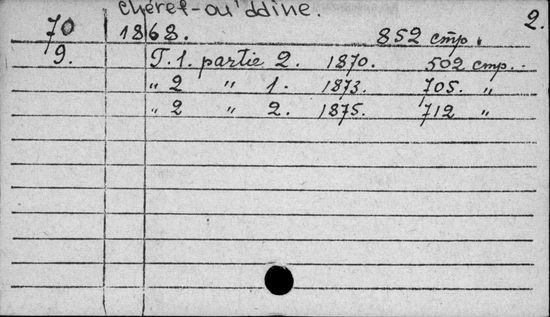 Cheref-ou'ddine. 2.
70 1868. 852 стр.
9. T. 1. partie 2. 1870. 502 стр.
„ 2 „ 1. 1873. 705. „
„ 2 „ 2. 1875. 712 „